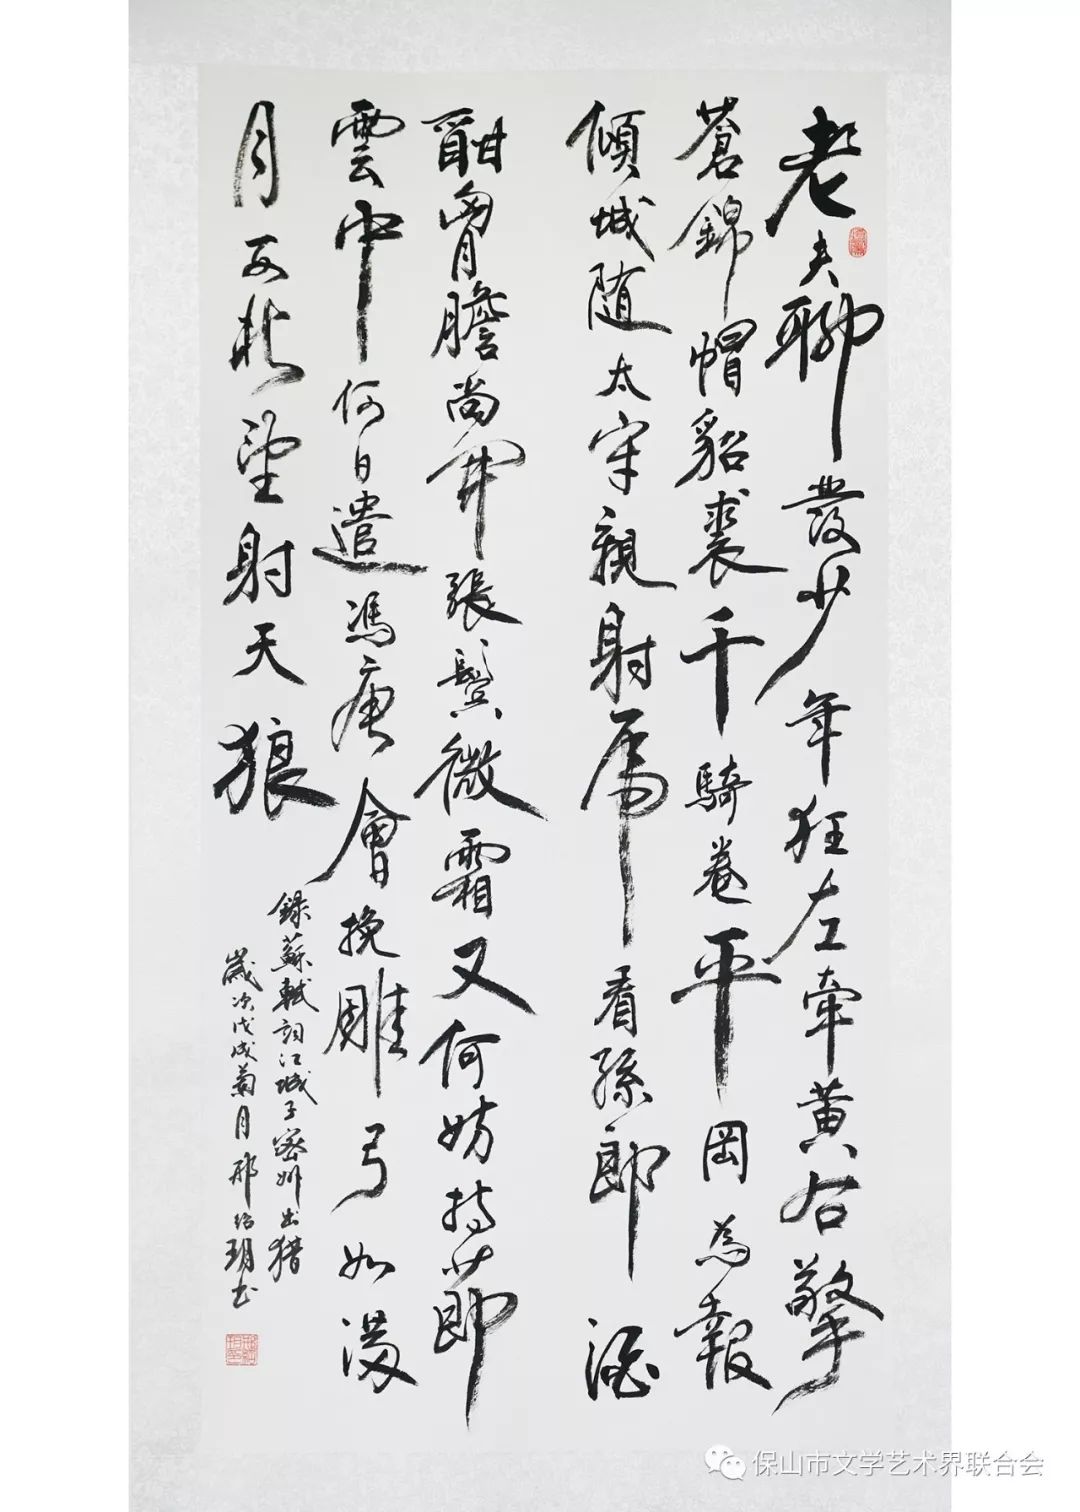 老夫聊發少年狂左牽黃右擎
蒼錦帽貂裘千騎卷平岡為報
傾城随太守親射虎看孫郎酒
酣胷膽尚開張鬢微霜又何妨持節
雲中何日遣馮唐會挽雕弓如滿
月西北望射天狼
錄蘇軾詞江城子密州出猎
歲次戊戌菊月邢玥书
保山市文学艺术界联合会